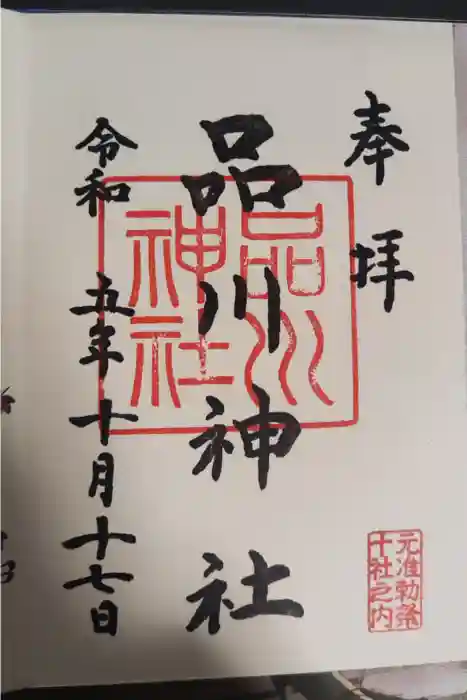 奉拝
品川神社
令和五年十月十七日
品川
神社
元准勅祭
十社之内